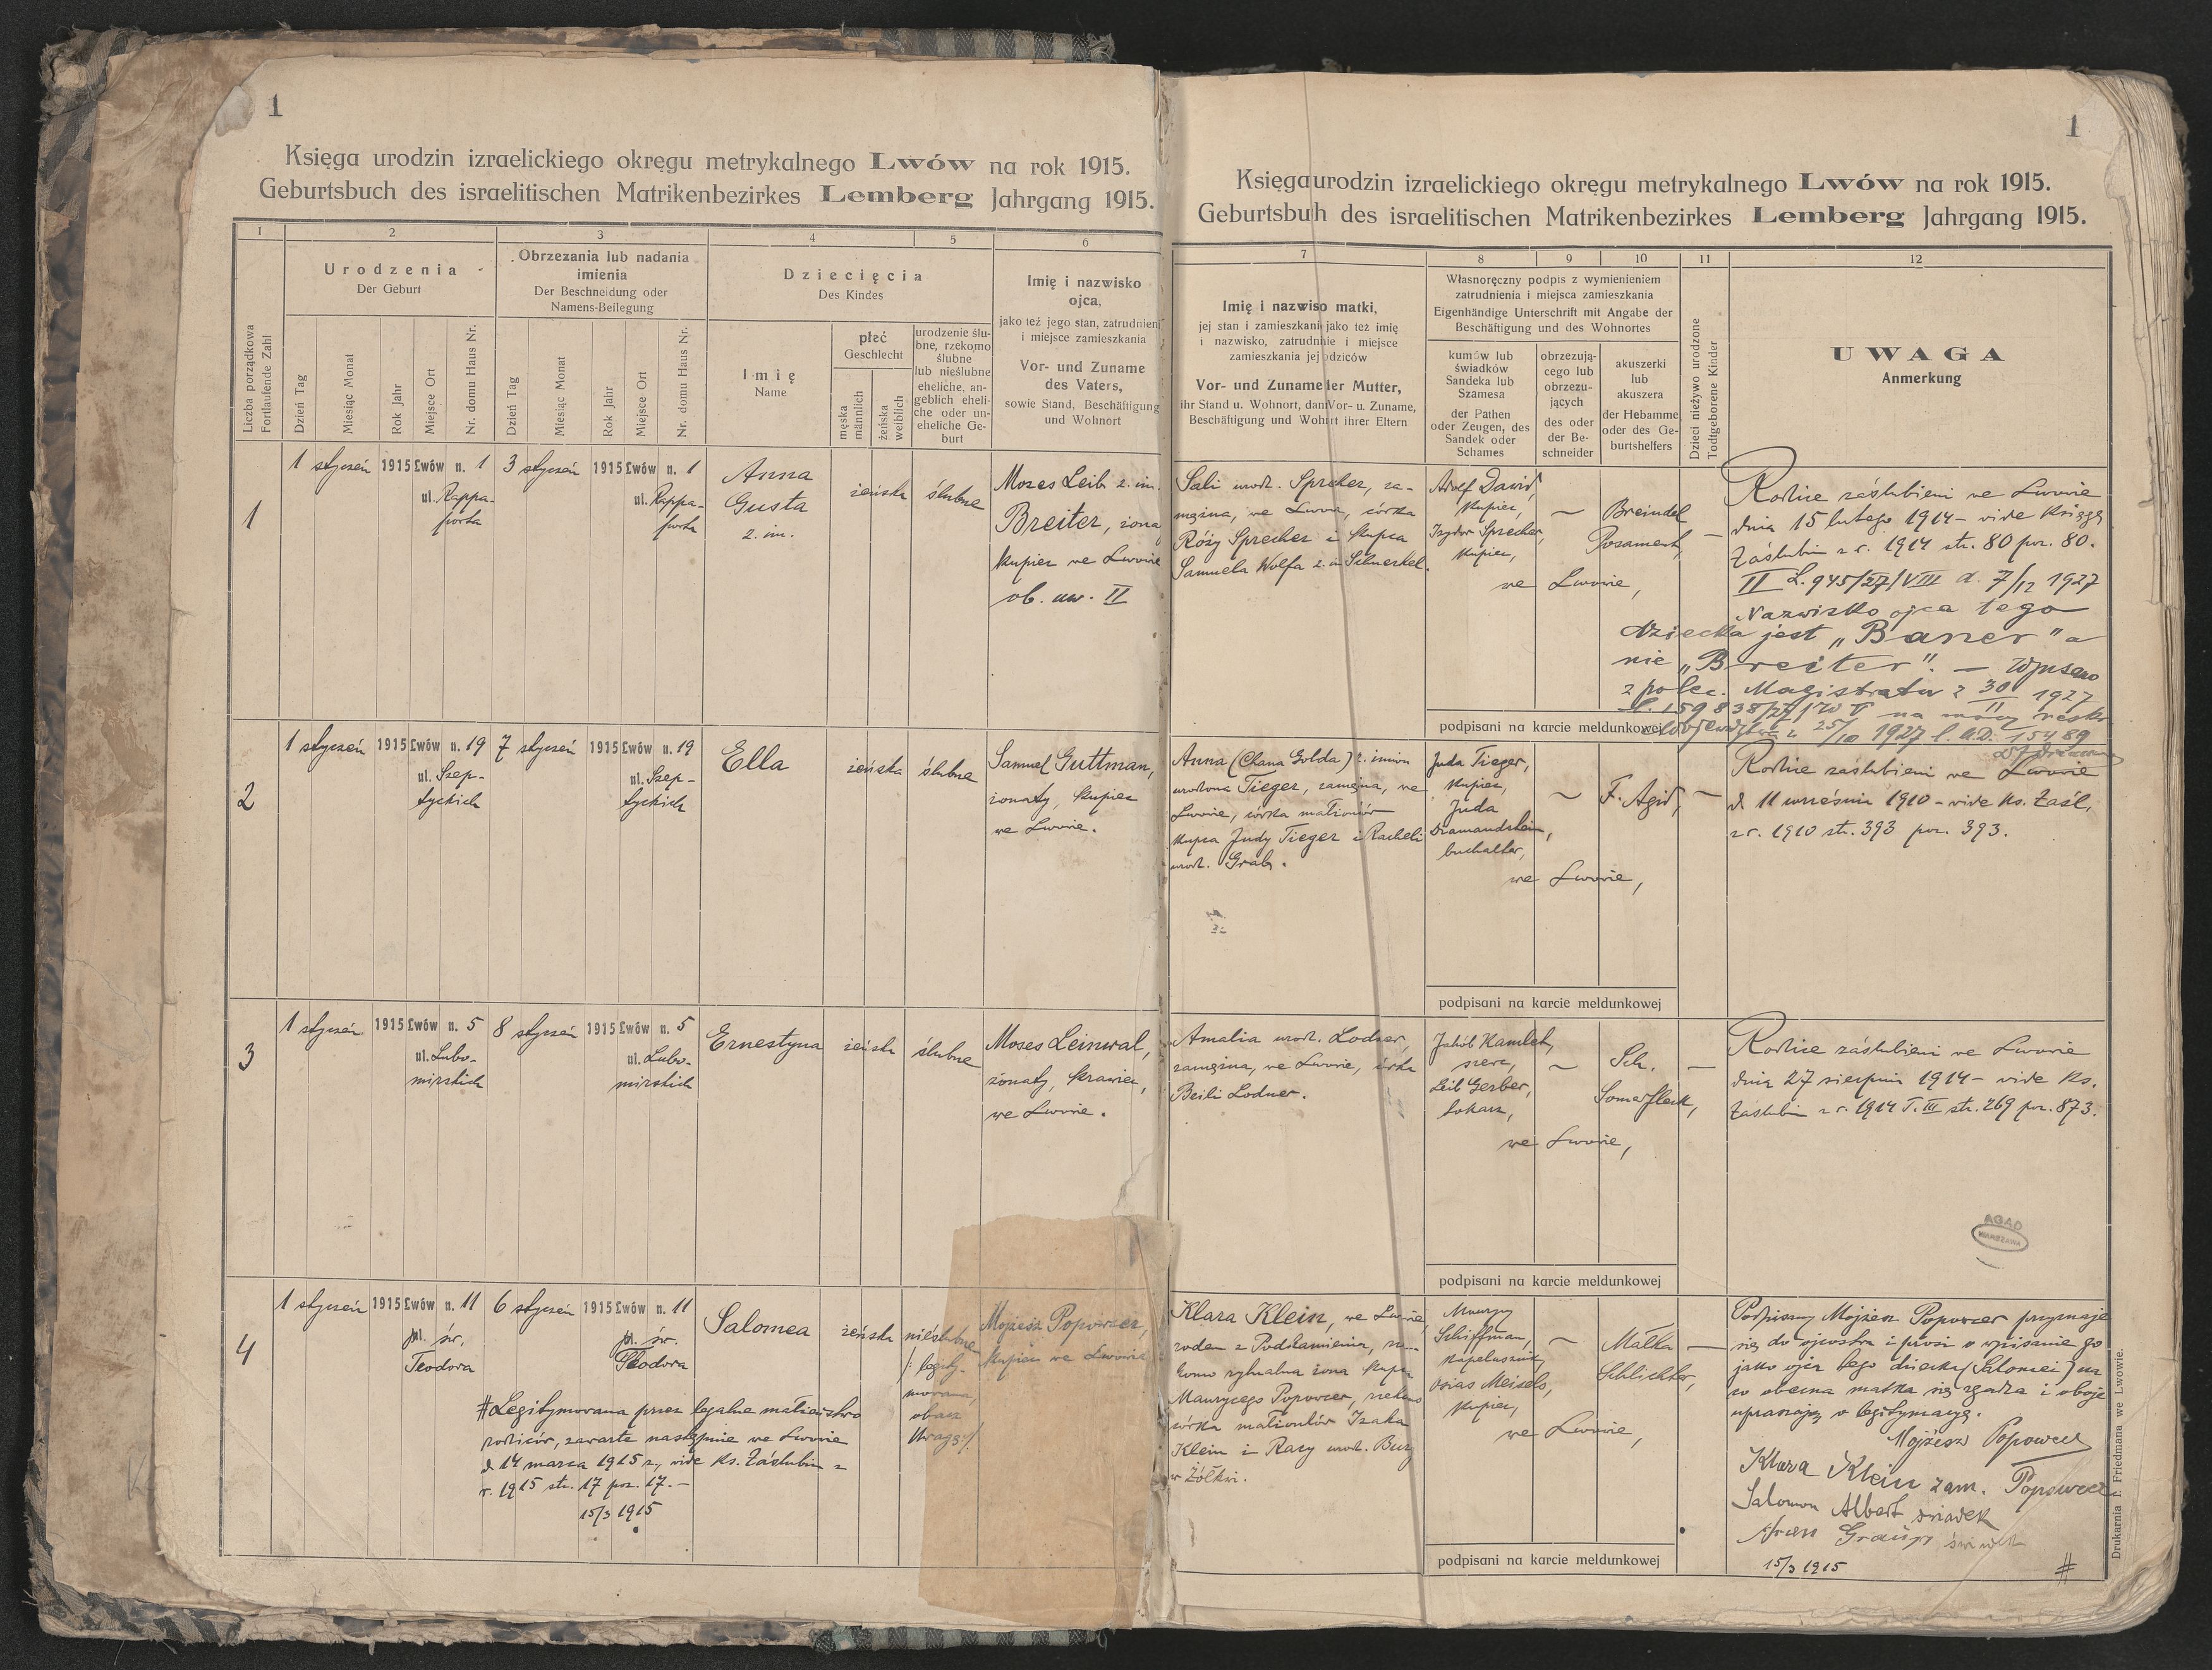 1
Księga urodzin izraelickiego okręgu metrykalnego Lwów na rok 1915.
Geburtsbuch des israelitischen Matrikenbezirkes Lemberg Jahrgang 1915.
1 2 3 4 5 6
Liczba porządkowa
Fortlaufende Zahl
Urodzenia
Der Geburt
Dzień Tag
Miesiąc Monat
Rok Jahr
Miejsce Ort
Nr. domu Haus Nr.
Obrzezania lub nadania
imienia
Der Beschneidung oder
Namens-Beilegung
Dzień Tag
Miesiąc Monat
Rok Jahr
Miejsce Ort
Nr. domu Haus Nr.
Dziecięcia
Des Kindes
Imię
Name
płeć
Geschlecht
męska
männlich
żeńska
weiblich
urodzenie ślu-
bne, rzekomo
ślubne
lub nieślubne
eheliche, an-
geblich eheli-
che oder un-
eheliche Ge-
burt
Imię i nazwisko
ojca,
jako też jego stan, zatrudnieni
i miejsce zamieszkania
Vor- und Zuname
des Vaters,
sowie Stand, Beschäftigung
und Wohnort
1
1 styczeń 1915 Lwów n. 1
ul. Rappa-
porta
3 styczeń 1915 Lwów n. 1
ul. Rappa-
porta
Anna
Gusta
2. im.
żeńska
ślubne
Moses Leib 2. im.
Breiter, żona
kupiec we Lwowie
ob. uw. II
2
1 styczeń 1915 Lwów n. 19
ul. Szep-
tyckich
7 styczeń 1915 Lwów n. 19
ul. Szep-
tyckich
Ella
żeńska
ślubne
Samuel Guttman,
żonaty, kupiec
we Lwowie.
3
1 styczeń 1915 Lwów n. 5
ul. Lubo-
mirskich
8 styczeń 1915 Lwów n. 5
ul. Lubo-
mirskich
Ernestyna
żeńska
ślubne
Moses Leinwal,
żonaty, krawiec,
we Lwowie.
4
1 styczeń 1915 Lwów n. 11
pl. św.
Teodora
6 styczeń 1915 Lwów n. 11
pl. św.
Teodora
Salomea
żeńska
nieślubne
/: legity-
mowana,
obacz
uwagę:/
Mojżesz Popowcer,
kupiec we Lwowie
# Legitymowana przez legalne małżeństwo
rodziców, zawarte następnie we Lwowie
d. 14 marca 1915 r., vide ks. Zaślubin z
r. 1915 str. 17 poz. 17. –
15/3 1915
1
Księga urodzin izraelickiego okręgu metrykalnego Lwów na rok 1915.
Geburtsbuh des israelitischen Matrikenbezirkes Lemberg Jahrgang 1915.
7 8 9 10 11 12
Imię i nazwiso matki,
jej stan i zamieszkani jako też imię
i nazwisko, zatrudnie i miejsce
zamieszkania jej odziców
Vor- und Zuname der Mutter,
ihr Stand u. Wohnort, dann Vor- u. Zuname,
Beschäftigung und Wohnrt ihrer Eltern
Własnoręczny podpis z wymienieniem
zatrudnienia i miejsca zamieszkania
Eigenhändige Unterschrift mit Angabe der
Beschäftigung und des Wohnortes
kumów lub
świadków
Sandeka lub
Szamesa
der Pathen
oder Zeugen, des
Sandek oder
Schames
obrzezują-
cego lub
obrzezu-
jących
des oder
der Be-
schneider
akuszerki
lub
akuszera
der Hebamme
oder des Ge-
burtshelfers
Dzieci nieżywo urodzone
Todtgeborene Kinder
UWAGA
Anmerkung
Sali urodz. Sprecher, za-
mężna, we Lwowie, córka
Róży Sprecher i kupca
Samuela Wolfa 2. im
Adolf Dawid,
kupiec,
Izydor Sprecher,
kupiec,
~
Breindel
Posament,
we Lwowie,
–
Rodzice zaślubieni we Lwowie
dnia 15 lutego 1914 – vide Księgę
Zaślubin z r. 1914 str. 80 poz. 80.
II L. 945/27/VIII d. 7/12 1927
Nazwisko ojca tego
dziecka jest „Baner" a
nie „Breiter". – Wpisano
z polec. Magistratu z 30/11 1927
na mocy
Województwa z 25/10 1927
podpisani na karcie meldunkowej
Anna (Chana Golda) 2. imion
urodzona Tieger, zamężna, we
Lwowie, córka małżonków
kupca Judy Tieger i Racheli
urodz. Grab.
Juda Tieger,
kupiec,
Juda
buchalter,
~
F. Agid,
we Lwowie,
–
Rodzice zaślubieni we Lwowie
d. 11 września 1910 – vide ks. Zaśl.
z r. 1910 str. 393 poz. 393.
podpisani na karcie meldunkowej
Amalia urodz. Lodner,
zamężna, we Lwowie, córka
Beili Lodner.
Jakób Kamlet,
szewc,
Leib Gerber,
tokarz,
~
Sch.
we Lwowie,
–
Rodzice zaślubieni we Lwowie
dnia 27 sierpnia 1914 – vide ks.
Zaślubin z r. 1914 T. III str. 269 poz. 873.
AGAD
WARSZAWA
podpisani na karcie meldunkowej
Klara Klein, we Lwowie,
rodem z Podkamienia, rze-
komo rytualna żona kupca
Maurycego Popowcer, rzekomo
córka małżonków Izaka
Klein i Racy urodz.
w Żółkwi.
Maurycy
Schiffman,
kapelusznik,
Osias Meisels,
kupiec,
~
Małka
Schlichter,
we Lwowie,
–
Podpisany Mojżesz Popowcer przyznaje
się do ojcostwa i prosi o wpisanie go
jako ojca tego dziecka (Salomei) na
co obecna matka się zgadza i oboje
upraszają o legitymacyę.
Mojżesz Popowcer
Klara Klein zam. Popowcer
Salomon Albert świadek
świadek
15/3 1915
#
podpisani na karcie meldunkowej
Drukarnia I. Friedmana we Lwowie.